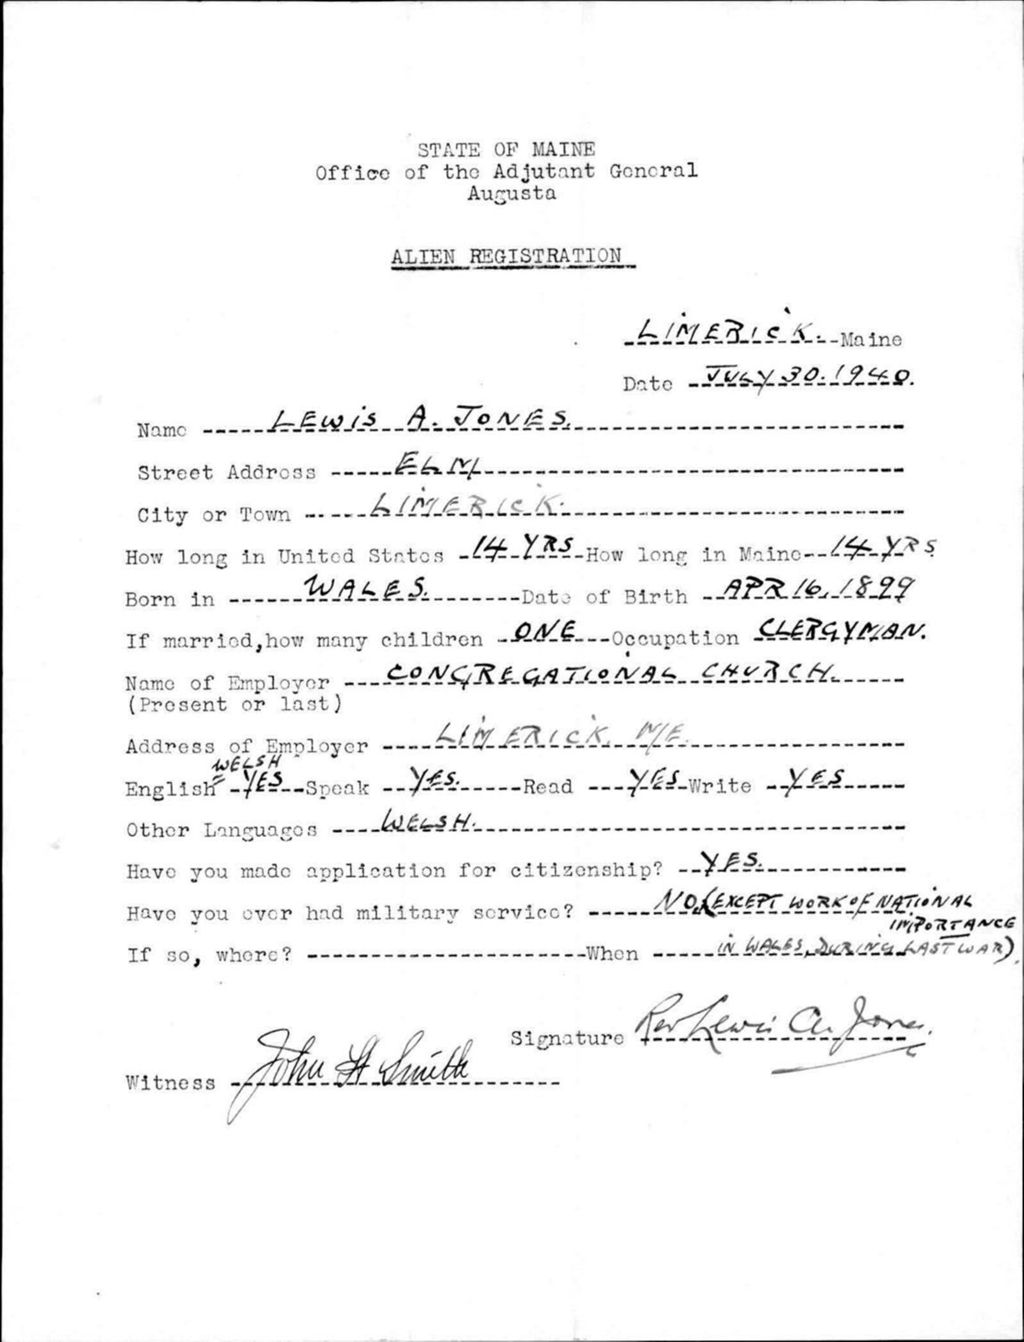 STATE OF MAINE
Office of the Adjutant General
Augusta
ALIEN REGISTRATION
LIMERICK. Maine
Date JULY 30. 1940.
Name LEWIS A. JONES.
Street Address ELM
City or Town LIMERICK.
How long in United States 14 YRS How long in Maine 14 YRS
Born in WALES. Date of Birth APR 16, 1899
If married, how many children ONE Occupation CLERGYMAN.
Name of Employer CONGREGATIONAL CHURCH.
(Present or last)
Address of Employer LIMERICK, ME.
WELSH
English YES Speak YES. Read YES Write YES
Other Languages WELSH.
Have you made application for citizenship? YES.
Have you ever had military service? NO. (EXCEPT WORK OF NATIONAL
IMPORTANCE
If so, where? When IN WALES, DURING LAST WAR).
Signature Rev Lewis A. Jones.
Witness John H Smith